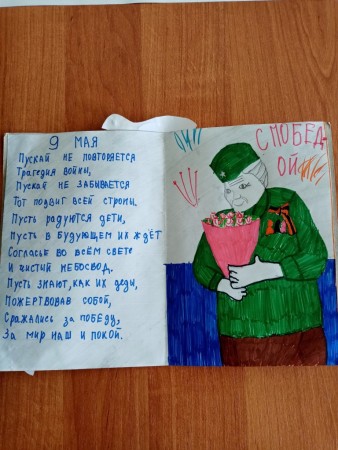 9 МАЯ
Пускай не повторяется
Трагедия войны,
Пускай не забивается
Тот подвиг всей строны.
Пусть радуются дети,
Пусть в будующем их ждёт
Согласье во всём свете
И чистый небосвод.
Пусть знают, как их деды,
Пожертвовав собой,
Сражались за победу,
За мир наш и покой.
С ПОБЕД-
ОЙ